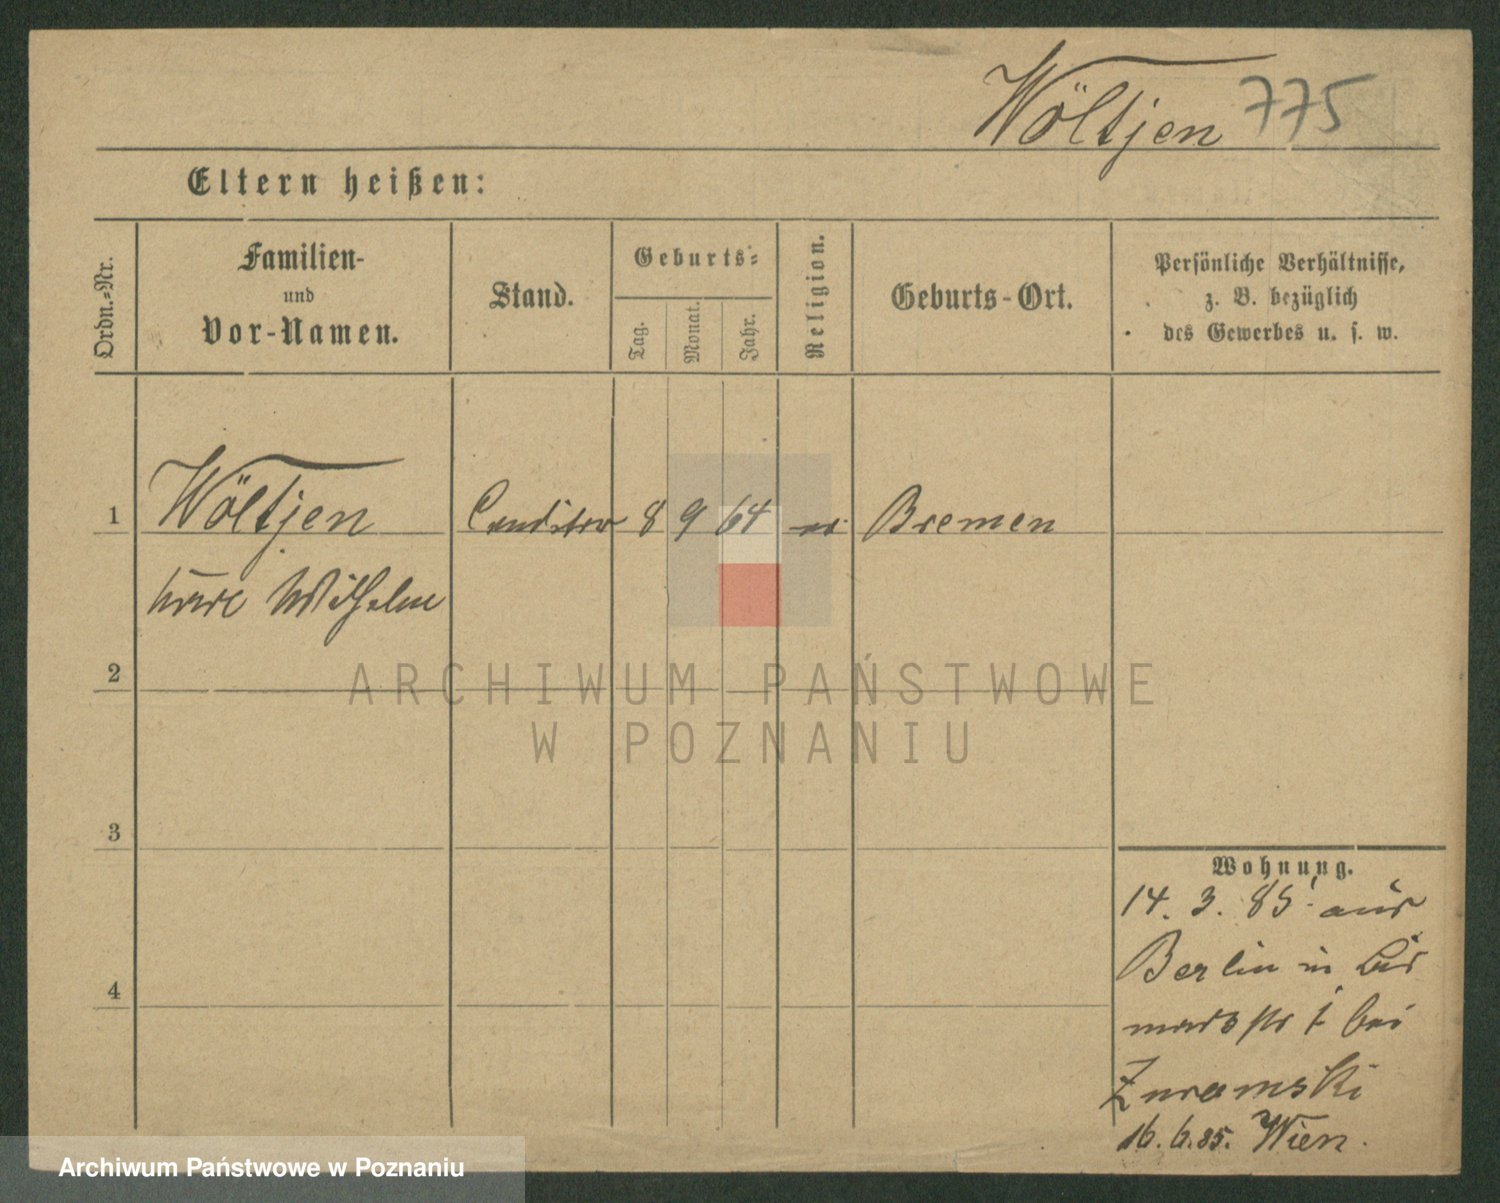 Wöltjen 775
Eltern heißen:
Ordn.=Nr.
Familien-
und
Vor-Namen.
Stand.
Geburts=
Tag.
Monat.
Jahr.
Religion.
Geburts-Ort.
Persönliche Verhältnisse,
z. B. bezüglich
des Gewerbes u. s. w.
1 Wöltjen Conditor 8 9 64 ev. Bremen
Wilhelm
2
3
4
Wohnung.
14. 3. 85 aus
Berlin in Bis
markstr 1 bei
Zuramski
16. 6. 85. Wien.
ARCHIWUM PAŃSTWOWE
W POZNANIU
Archiwum Państwowe w Poznaniu